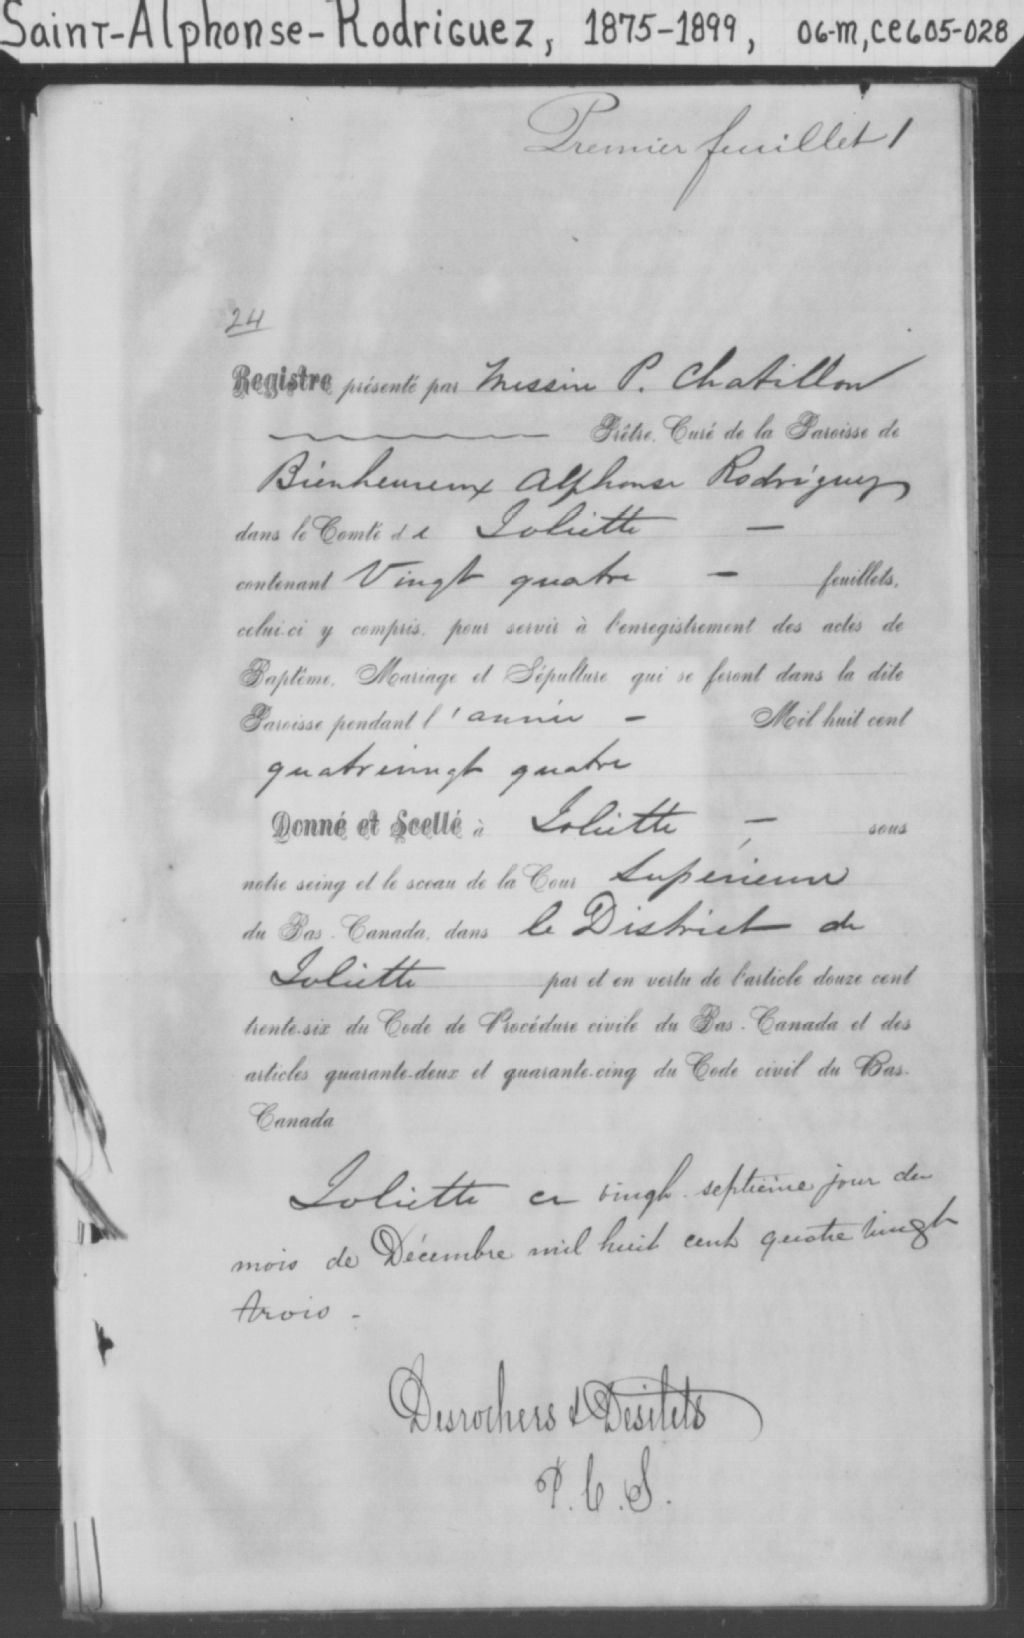 Saint-Alphonse-Rodriguez, 1875-1899, 06-M, CE605-028
Premier feuillet 1
24
Registre présenté par Messire P. Chatillon
Prêtre, Curé de la Paroisse de
Bienheureux Alphonse Rodriguez
dans le Comté de Joliette —
contenant Vingt quatre — feuillets,
celui-ci y compris, pour servir à l'enregistrement des actes de
Baptême, Mariage et Sépulture qui se feront dans la dite
Paroisse pendant l'année — Mil huit cent
quatrevingt quatre
Donné et Scellé à Joliette — sous
notre seing et le sceau de la Cour Supérieure
du Bas-Canada, dans le District de
Joliette par et en vertu de l'article douze cent
trente-six du Code de Procédure civile du Bas-Canada et des
articles quarante-deux et quarante-cinq du Code civil du Bas-
Canada
Joliette ce vingt-septième jour du
mois de Décembre mil huit cent quatre vingt
trois -
Desrochers & Desilets
P. C. S.